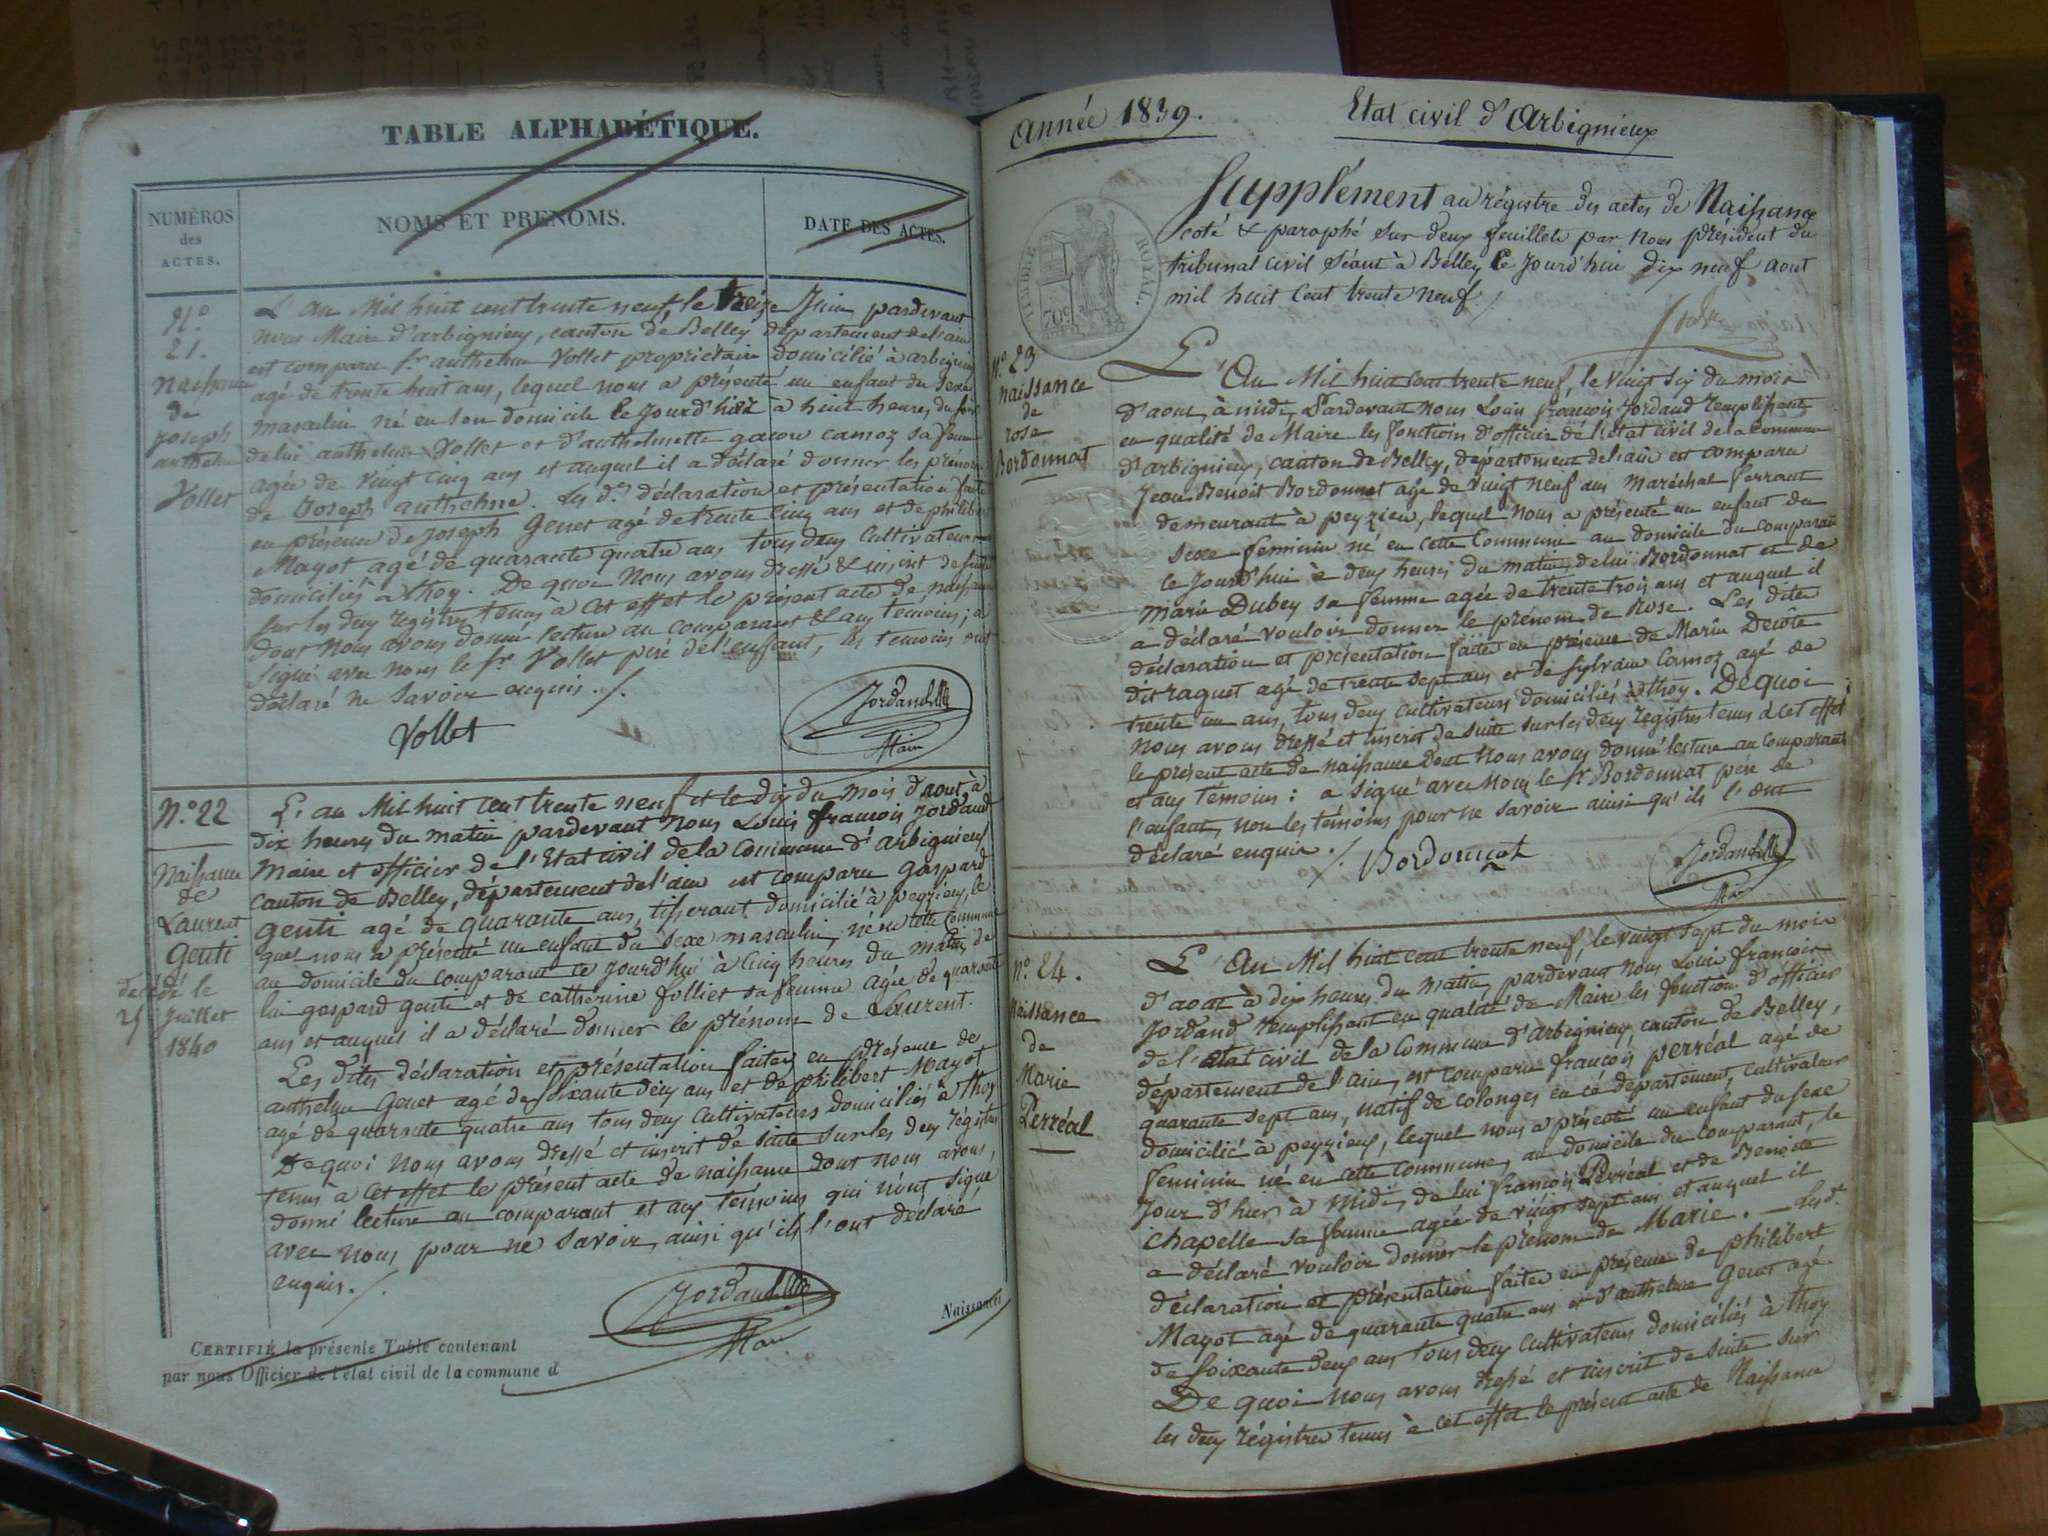 TABLE ALPHABÉTIQUE.
NUMÉROS
des
ACTES.
NOMS ET PRENOMS.
DATE DES ACTES.
N.o
21.
naissance
de
Joseph
anthelme
Vollet
L'an Mil huit cent trente neuf, le treize Juin pardevant
nous Maire d'arbignieu, canton de Belley département de l'ain
est comparu Sr anthelme Vollet propriétaire domicilié à arbignieu
agé de trente huit ans, lequel nous a présenté un enfant du sexe
masculin né en son domicile le jourd'hier à huit heures du soir
de lui anthelme Vollet et d'anthelmette gacon camoz sa femme
agée de vingt cinq ans et auquel il a déclaré donner les prénoms
de Joseph anthelme. Les d.es déclaration et présentation faites
en présence de Joseph Genet agé de trente cinq ans et de philibert
Mayot agé de quarante quatre ans tous deux cultivateurs
domiciliés à thoy. De quoi nous avons dressé & inscrit de suite
sur les deux registres tenus à cet effet le présent acte de naissance
dont nous avons donné lecture au comparant & aux témoins; a
signé avec nous le Sr Vollet père de l'enfant, les témoins ont
déclaré ne savoir enquis ./.
Vollet
Jordand
Maire
N.o 22
Naissance
de
Laurent
Genti
décédé le
25 Juillet
1840
L'an Mil huit cent trente neuf et le dix du mois d'aout, à
dix heures du matin pardevant nous Louis françois Jordand
Maire et officier de l'Etat civil de la Commune d'arbignieu
canton de Belley, département de l'ain est comparu Gaspard
genti agé de quarante ans, tisserant domicilié à peyzieu, le
quel nous a présenté un enfant du sexe masculin, né en cette Commune
au domicile du comparant ce jourd'hui à Cinq heures du matin, de
lui gaspard gente et de catherine folliet sa femme agée de quarante
ans et auquel il a déclaré donner le prénom de Laurent.
Les dites déclaration et présentation faites en présence de
anthelme Genet agé de soixante deux ans et de philibert Mayot
agé de quarante quatre ans tous deux Cultivateurs domiciliés à thoy
De quoi nous avons dressé et inscrit de suite sur les deux régistres
tenus à cet effet le présent acte de naissance dont nous avons,
donné lecture au comparant et aux témoins qui n'ont signé
avec nous pour ne savoir, ainsi qu'ils l'ont déclaré
enquis ./.
Jordand
Maire
Naissances
CERTIFIÉ la présente Table contenant
par nous Officier de l'état civil de la commune d
Année 1839.
Etat civil d'Arbignieux
TIMBRE ROYAL.
Supplément au régistre des actes de Naissance
coté & paraphé sur deux feuillets par nous président du
tribunal civil séant à Belley le jourd'hui dix neuf aout
mil huit cent trente neuf ./
N.o 23
naissance
de
rose
Bordonnat
L'An Mil huit cent trente neuf, le vingt six du mois
d'aout, à midi, Pardevant nous Louis françois Jordand remplissant
en qualité de Maire les fonctions d'officier de l'état civil de la Commune
d'arbignieu, canton de Belley, département de l'ain est comparu
Jean Benoit Bordonnat agé de vingt neuf ans Maréchal ferrant
demeurant à peyzieu, lequel nous a présenté un enfant du
sexe feminin né en cette Commune au domicile du comparant
ce jourd'hui à deux heures du matin, de lui Bordonnat et de
Marie Dubey sa femme agée de trente trois ans et auquel il
a déclaré vouloir donner le prénom de Rose. Les dites
déclaration et présentation faites en présence de Marin Decôte
dit raquet agé de trente sept ans et de Sylvain Camoz agé de
trente un ans, tous deux cultivateurs domiciliés à thoy. De quoi
Nous avons dressé et inscrit de suite sur les deux registres tenus à cet effet
le présent acte de naissance dont nous avons donné lecture au comparant
et aux témoins: a signé avec nous le Sr Bordonnat père de
l'enfant, non les témoins pour ne savoir ainsi qu'ils l'ont
déclaré enquis ./.
Bordonnat
Jordand
Maire
N.o 24.
Naissance
de
Marie
Perréal
L'An Mil huit cent trente neuf, le vingt sept du mois
d'aout à dix heures du matin, pardevant nous Louis françois
Jordand remplissant en qualité de Maire les fonction d'officier
de l'état civil de la Commune d'Arbignieu, canton de Belley,
département de l'ain, est comparu françois perréal agé de
quarante sept ans, natif de colonges en ce département, cultivateur
domicilié à peyzieu, lequel nous a présenté un enfant du sexe
feminin né en cette commune, au domicile du comparant, le
jour d'hier à midi, de lui françois Perréal et de Benoite
chapelle sa femme agée de vingt sept ans et auquel il
a déclaré vouloir donner le prénom de Marie. — Les d.es
déclaration et présentation faites en présence de philibert
Mayot agé de quarante quatre ans et d'anthelme Genet agé
de soixante deux ans tous deux cultivateurs domiciliés à thoy
De quoi nous avons dressé et inscrit de suite sur
les deux régistres tenus à cet effet le présent acte de Naissance